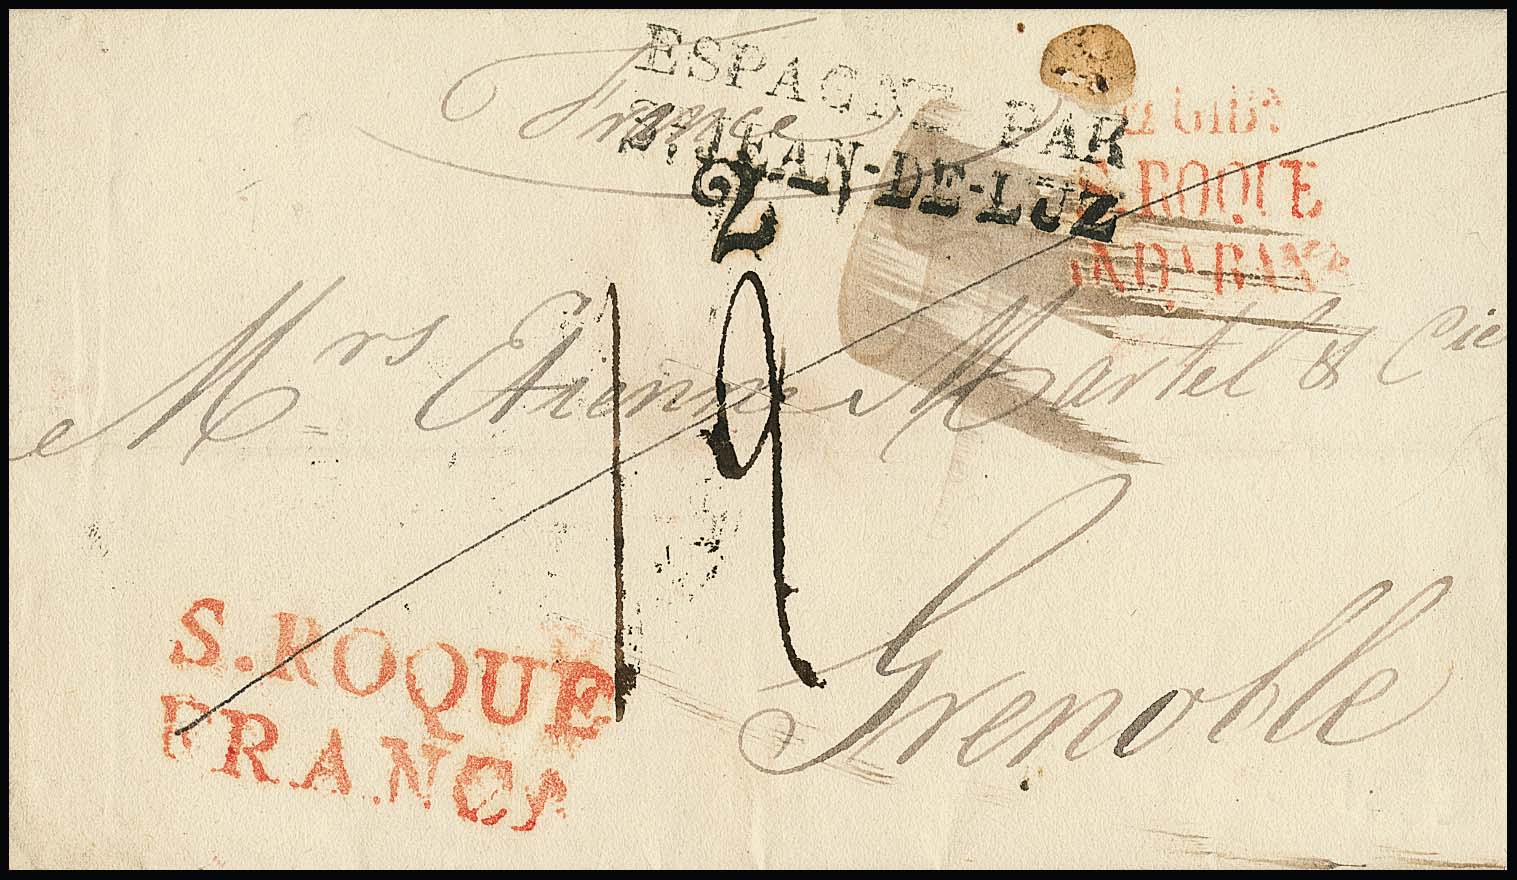 France
ESPAGNE PAR
St. JEAN-DE-LUZ
2
S. ROQUE
ANDA BAXA
Mrs Etienne Martel & Cie
19
Grenoble
S. ROQUE
FRANCA